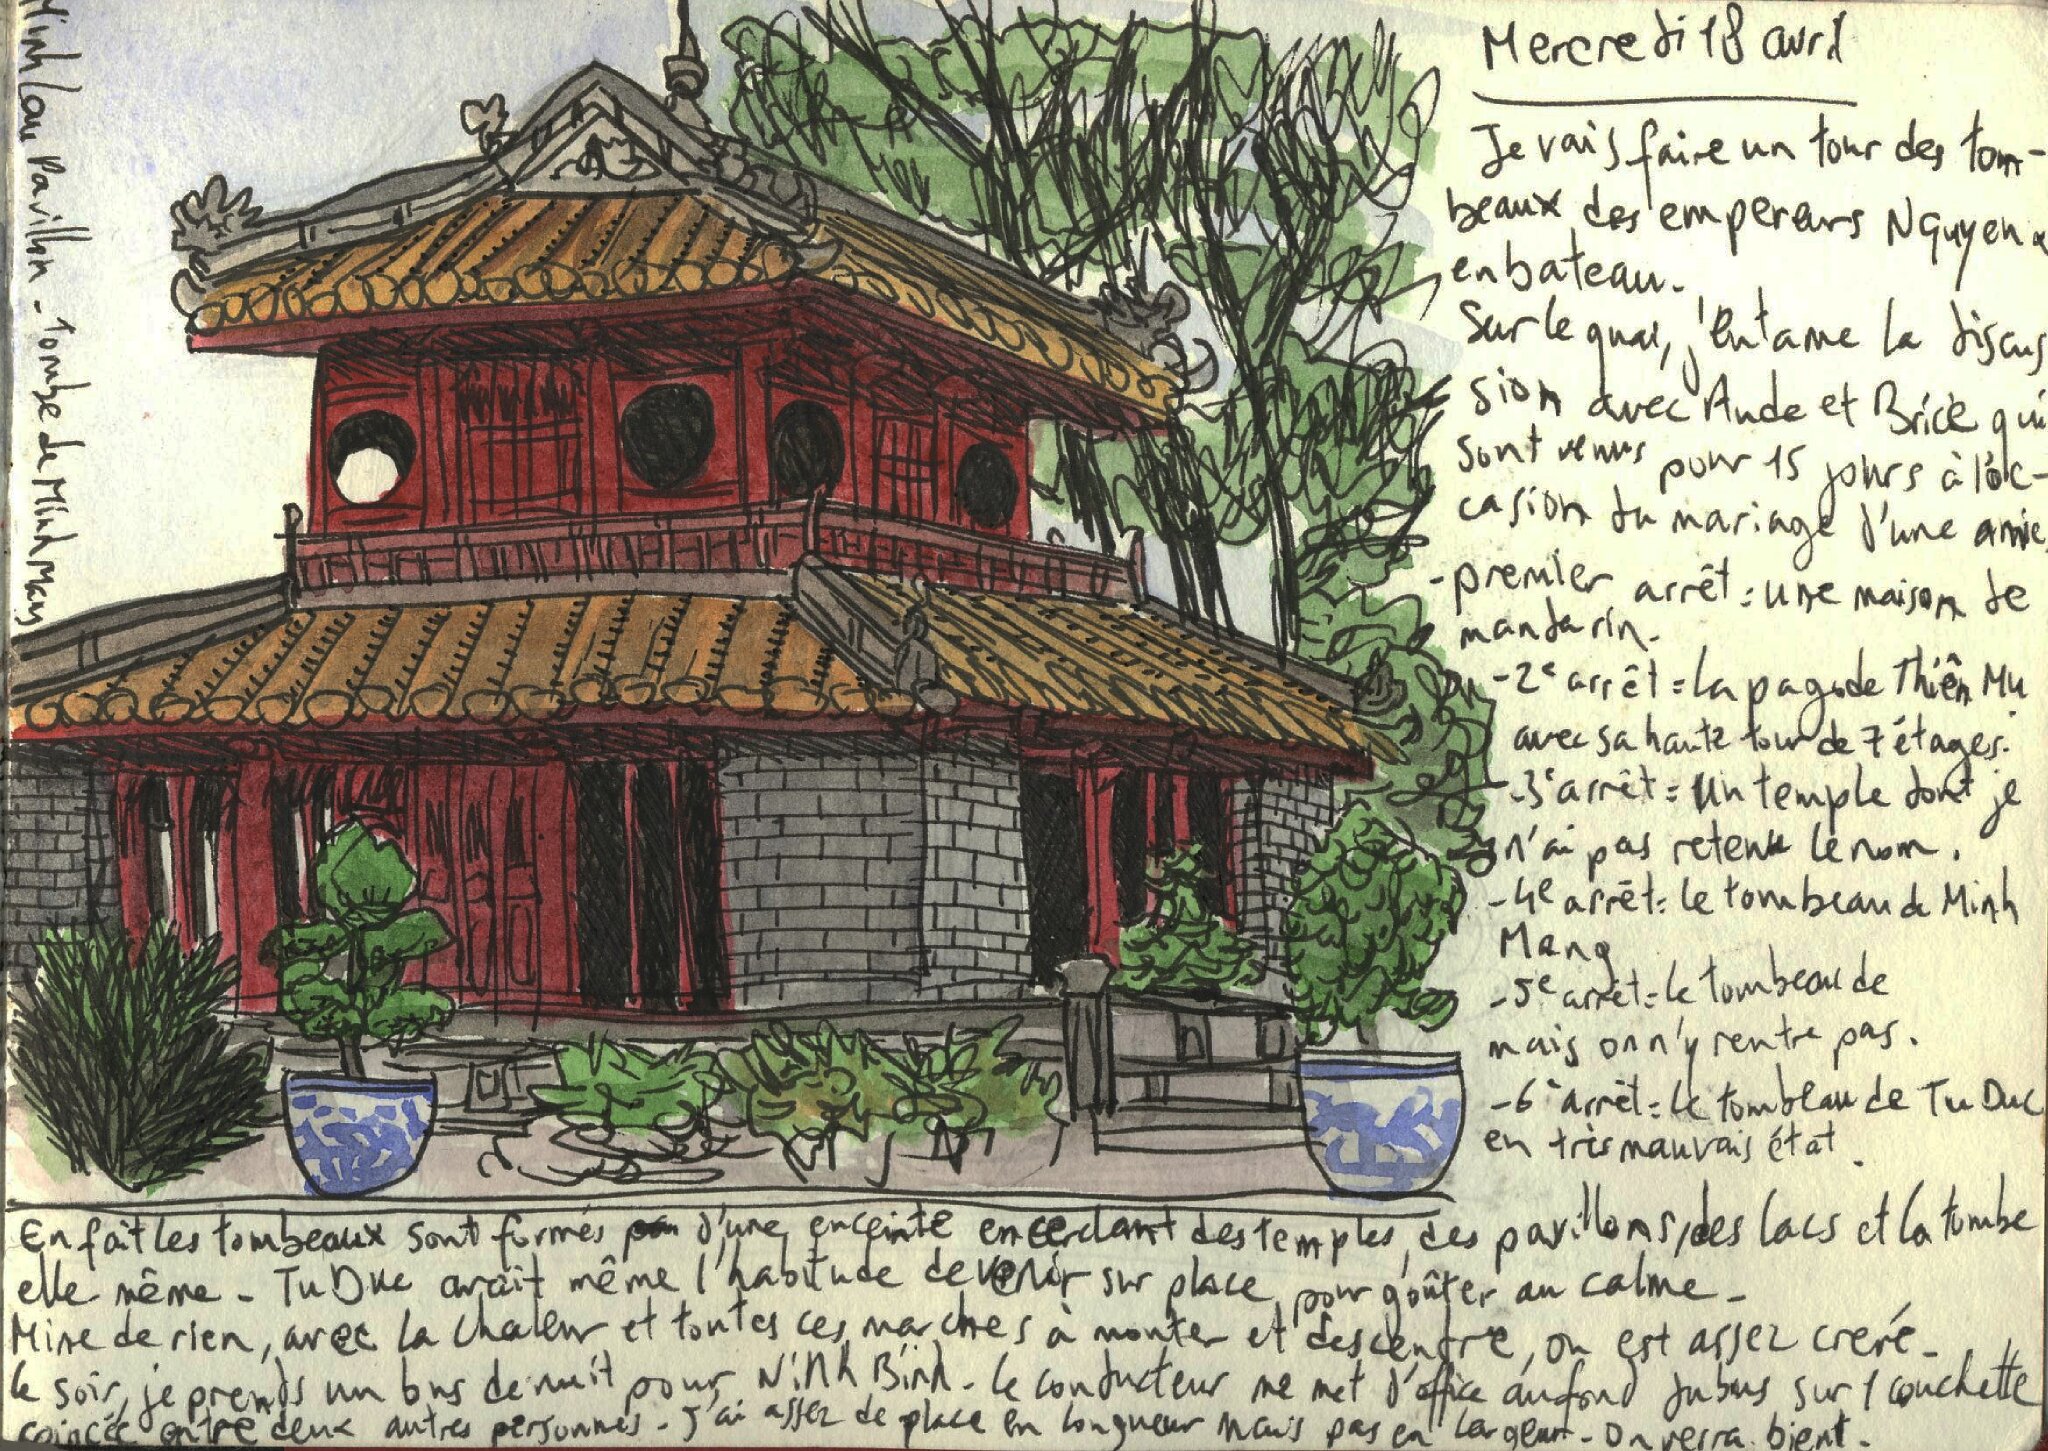 Minh Lau Pavillon - Tombe de Minh Mang
Mercredi 18 avril
Je vais faire un tour des tom-
beaux des empereurs Nguyen
en bateau.
Sur le quai, j'entame la discus
sion avec Aude et Brice qui
sont venus pour 15 jours à l'oc-
casion du mariage d'une amie.
- premier arrêt : une maison de
mandarin.
- 2e arrêt = la pagode Thiên Mu
avec sa haute tour de 7 étages.
- 3e arrêt = Un temple dont je
n'ai pas retenu le nom.
- 4e arrêt = le tombeau de Minh
Mang
- 5e arrêt = le tombeau de
mais on n'y rentre pas.
- 6e arrêt = le tombeau de Tu Duc
en très mauvais état.
En fait les tombeaux sont formés d'une enceinte encerclant des temples, des pavillons, des lacs et la tombe
elle même - Tu Duc avait même l'habitude de venir sur place pour goûter au calme -
Mine de rien, avec la chaleur et toutes ces marches à monter et descendre, on est assez crevé -
le soir, je prends un bus de nuit pour Ninh Binh - Le conducteur me met d'office au fond du bus sur 1 couchette
coincée entre deux autres personnes - J'ai assez de place en longueur mais pas en largeur - On verra bient.